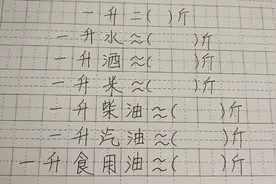 一升=( )斤
一升水≈( )斤
一升酒≈( )斤
一升米≈( )斤
一升柴油≈( )斤
一升汽油≈( )斤
一升食用油≈( )斤